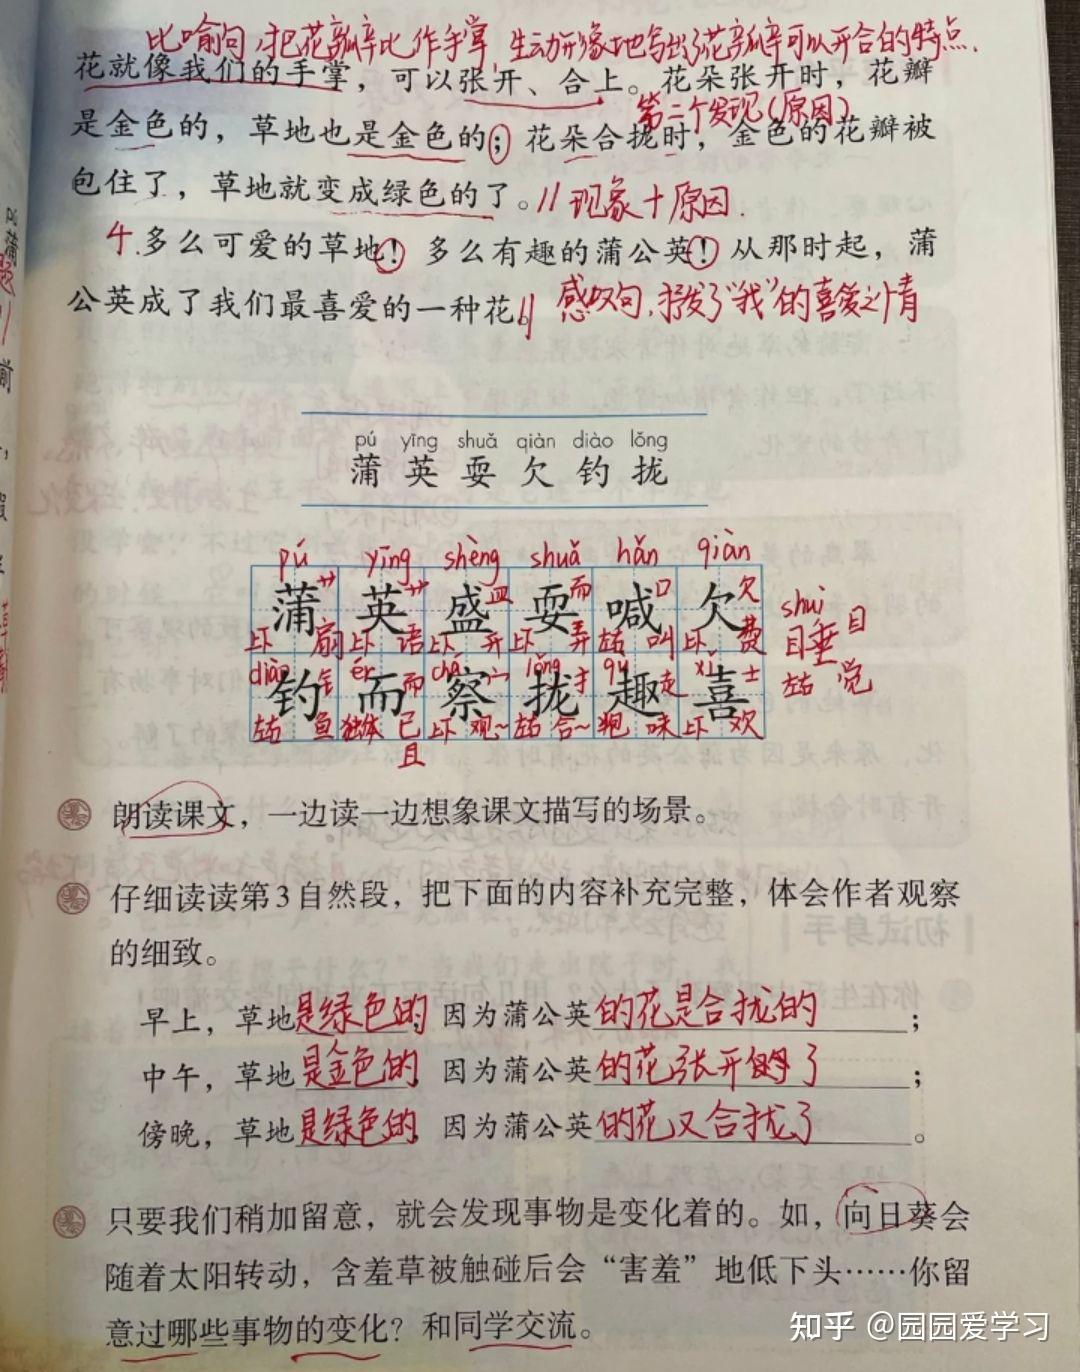 比喻句,把花瓣比作手掌,生动形象地写出了花瓣可以开合的特点.
花就像我们的手掌，可以张开、合上。花朵张开时，花瓣
第二个发现(原因)
是金色的，草地也是金色的；花朵合拢时，金色的花瓣被
包住了，草地就变成绿色的了。// 现象+原因.
4.多么可爱的草地！多么有趣的蒲公英！从那时起，蒲
公英成了我们最喜爱的一种花。// 感叹句,抒发了“我”的喜爱之情
pú yīng shuǎ qiàn diào lǒng
蒲 英 耍 欠 钓 拢
pú yīng shèng shuǎ hǎn qiàn
蒲 英 盛 耍 喊 欠
艹 艹 皿 而 口 欠
上下 扇 上下 语 上下 开 上下 弄 左右 叫 上下 费
shuì
睡 目
左右 觉
diào ér chá lǒng qù xǐ
钓 而 察 拢 趣 喜
钅 而 宀 扌 走 士
左右 鱼 独体 已 上下 观~ 左右 合~ 半包 味 上下 欢
且
朗读课文，一边读一边想象课文描写的场景。
仔细读读第3自然段，把下面的内容补充完整，体会作者观察
的细致。
早上，草地是绿色的，因为蒲公英的花是合拢的；
中午，草地是金色的 因为蒲公英的花张开了；
傍晚，草地是绿色的 因为蒲公英的花又合拢了。
只要我们稍加留意，就会发现事物是变化着的。如，向日葵会
随着太阳转动，含羞草被触碰后会“害羞”地低下头……你留
意过哪些事物的变化？和同学交流。
知乎 @园园爱学习